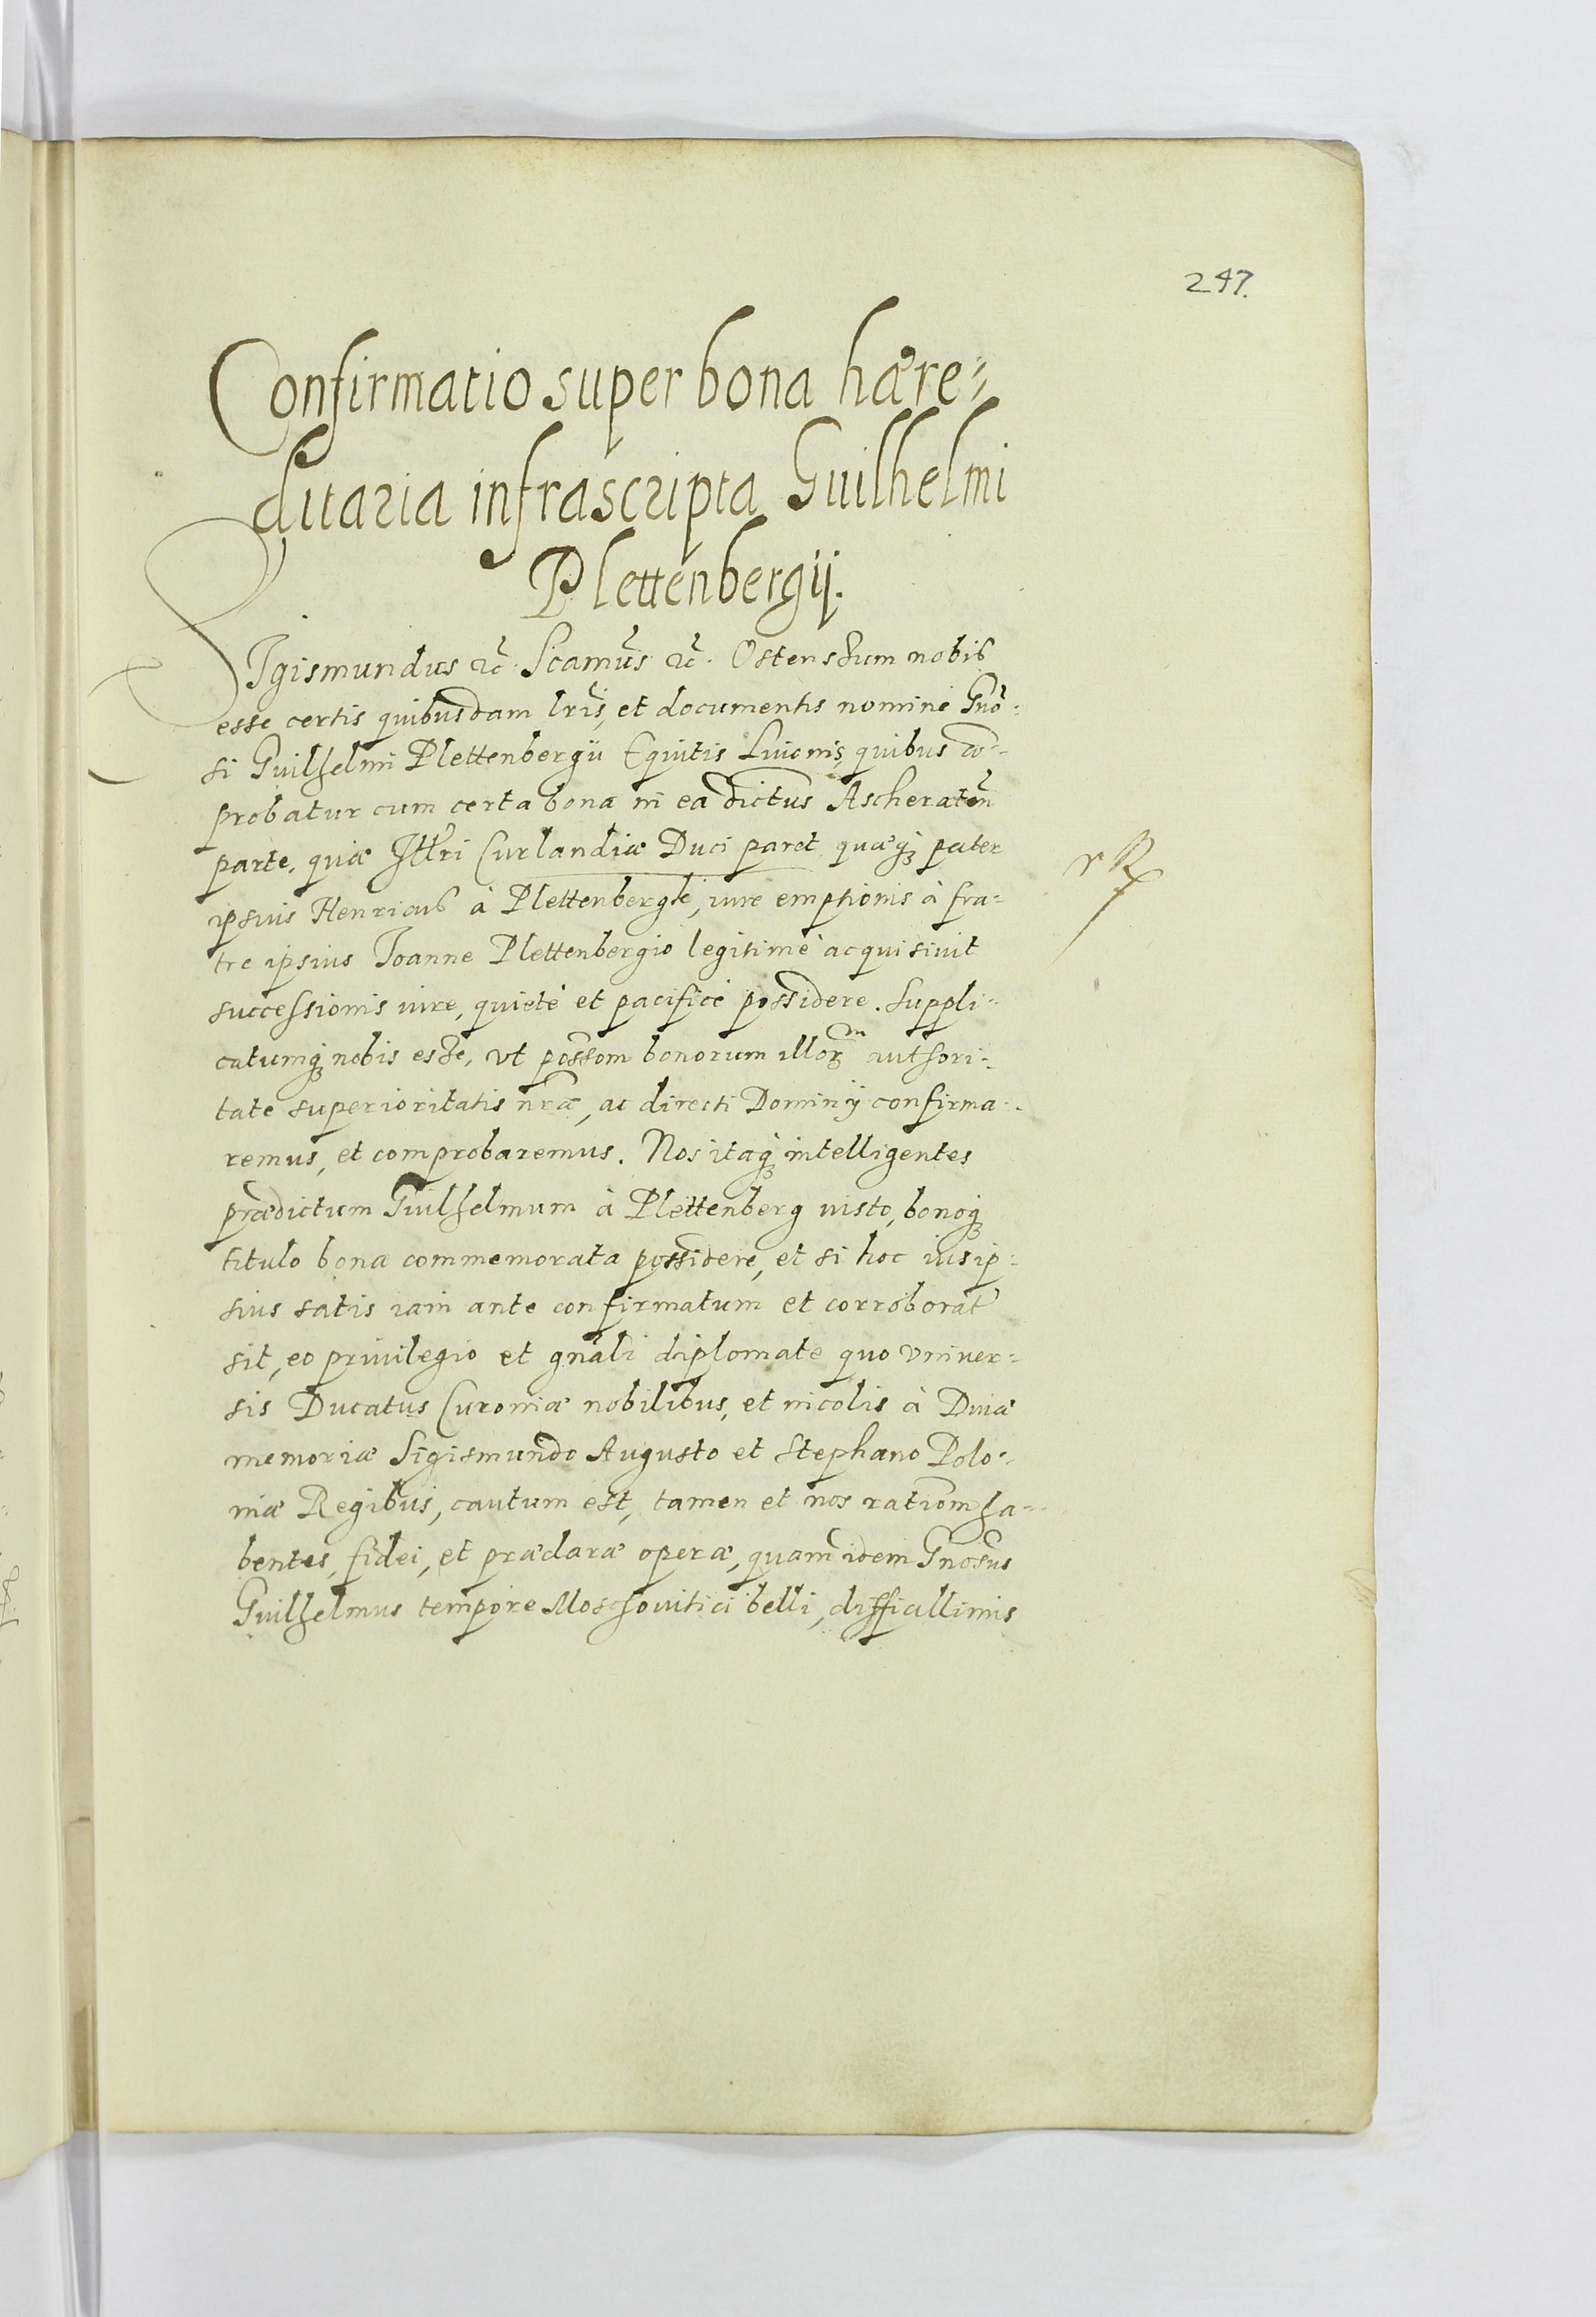 247.
Confirmatio super bona hære-
ditaria infrascripta Guilhelmi
Plettenbergij.
SIgismundus etc. Scamus etc. Ostensum nobis
esse certis quibusdam lris, et documentis nomine Gno-
si Guilhelmi Plettenbergii Equitis Liuonis, quibus co-
probatur eum certa bona in ea dictus Ascheraten
parte, quæ Illri Curlandiæ Duci paret, quæq; pater
ipsius Henricus à Plettenbergk, iure emptionis à fra-
tre ipsius Joanne Plettenbergio legitimè acquisiuit
successionis iure, quietè et pacificè possidere. Suppli-
catumq; nobis esse, vt possom bonorum illorum authori-
tate superioritatis nræ, ac directi Dominij confirma-
remus, et comprobaremus. Nos itaq; intelligentes
prædictum Guilhelmum à Plettenberg iusto, bonoq;
titulo bona commemorata possidere, et si hoc ius ip-
sius satis iam ante confirmatum et corroborat
sit, eo priuilegio et gnali diplomate quo vniuer-
sis Ducatus Curoniæ nobilibus, et incolis à Diuæ
memoriæ Sigismundo Augusto et Stephano Polo-
niæ Regibus, cautum est, tamen et nos rationem ha-
bentes, fidei, et præclaræ operæ, quam idem Gnosus
Guilhelmus tempore Moschouitici belli, difficillimis